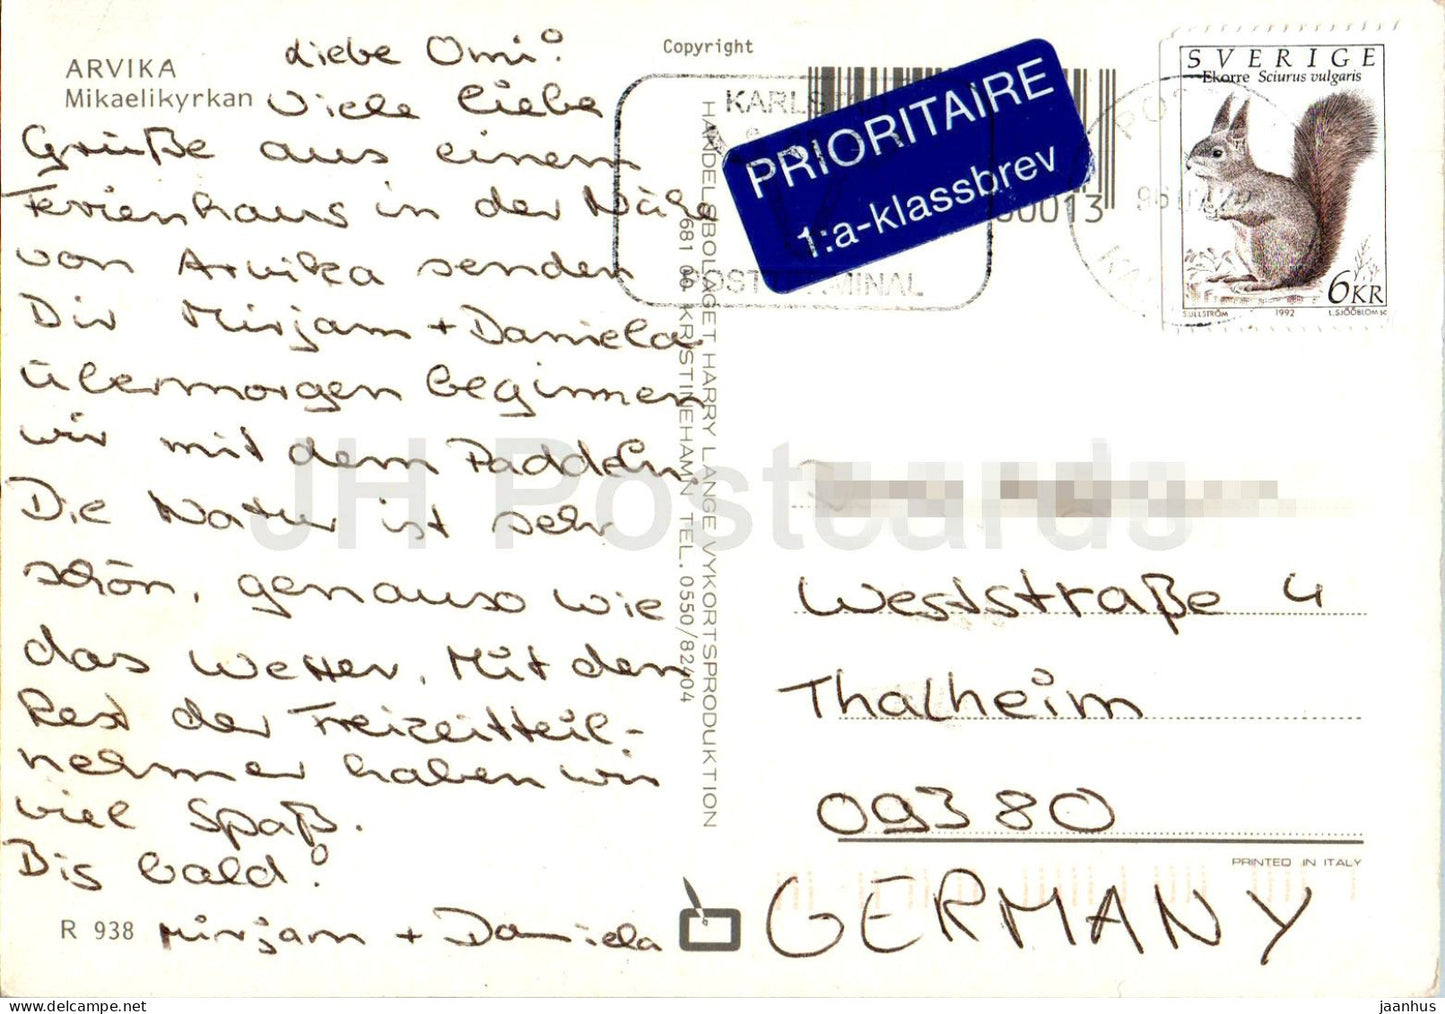 ARVIKA
Mikaelikyrkan
Liebe Omi!
Viele liebe
Grüße aus einem
Ferienhaus in der Nähe
von Arvika senden
Dir Mirjam + Daniela
übermorgen beginnen
wir mit dem Paddeln.
Die Natur ist sehr
schön, genauso wie
das Wetter. Mit den
Rest der Freizeitteil-
nehmer haben wir
viel Spaß.
Bis bald!
Mirjam + Daniela
R 938
Copyright
HANDELSBOLAGET HARRY LANGE VYKORTSPRODUKTION
KRISTINEHAMN TEL. 0550/82404
PRIORITAIRE
1:a-klassbrev
POSTTERMINAL
SVERIGE
Ekorre Sciurus vulgaris
6KR
S.ULLSTRÖM 1992 L.SJÖÖBLOM SC
Weststraße 4
Thalheim
09380
PRINTED IN ITALY
GERMANY
JH Postcards
www.delcampe.net
jaanhus